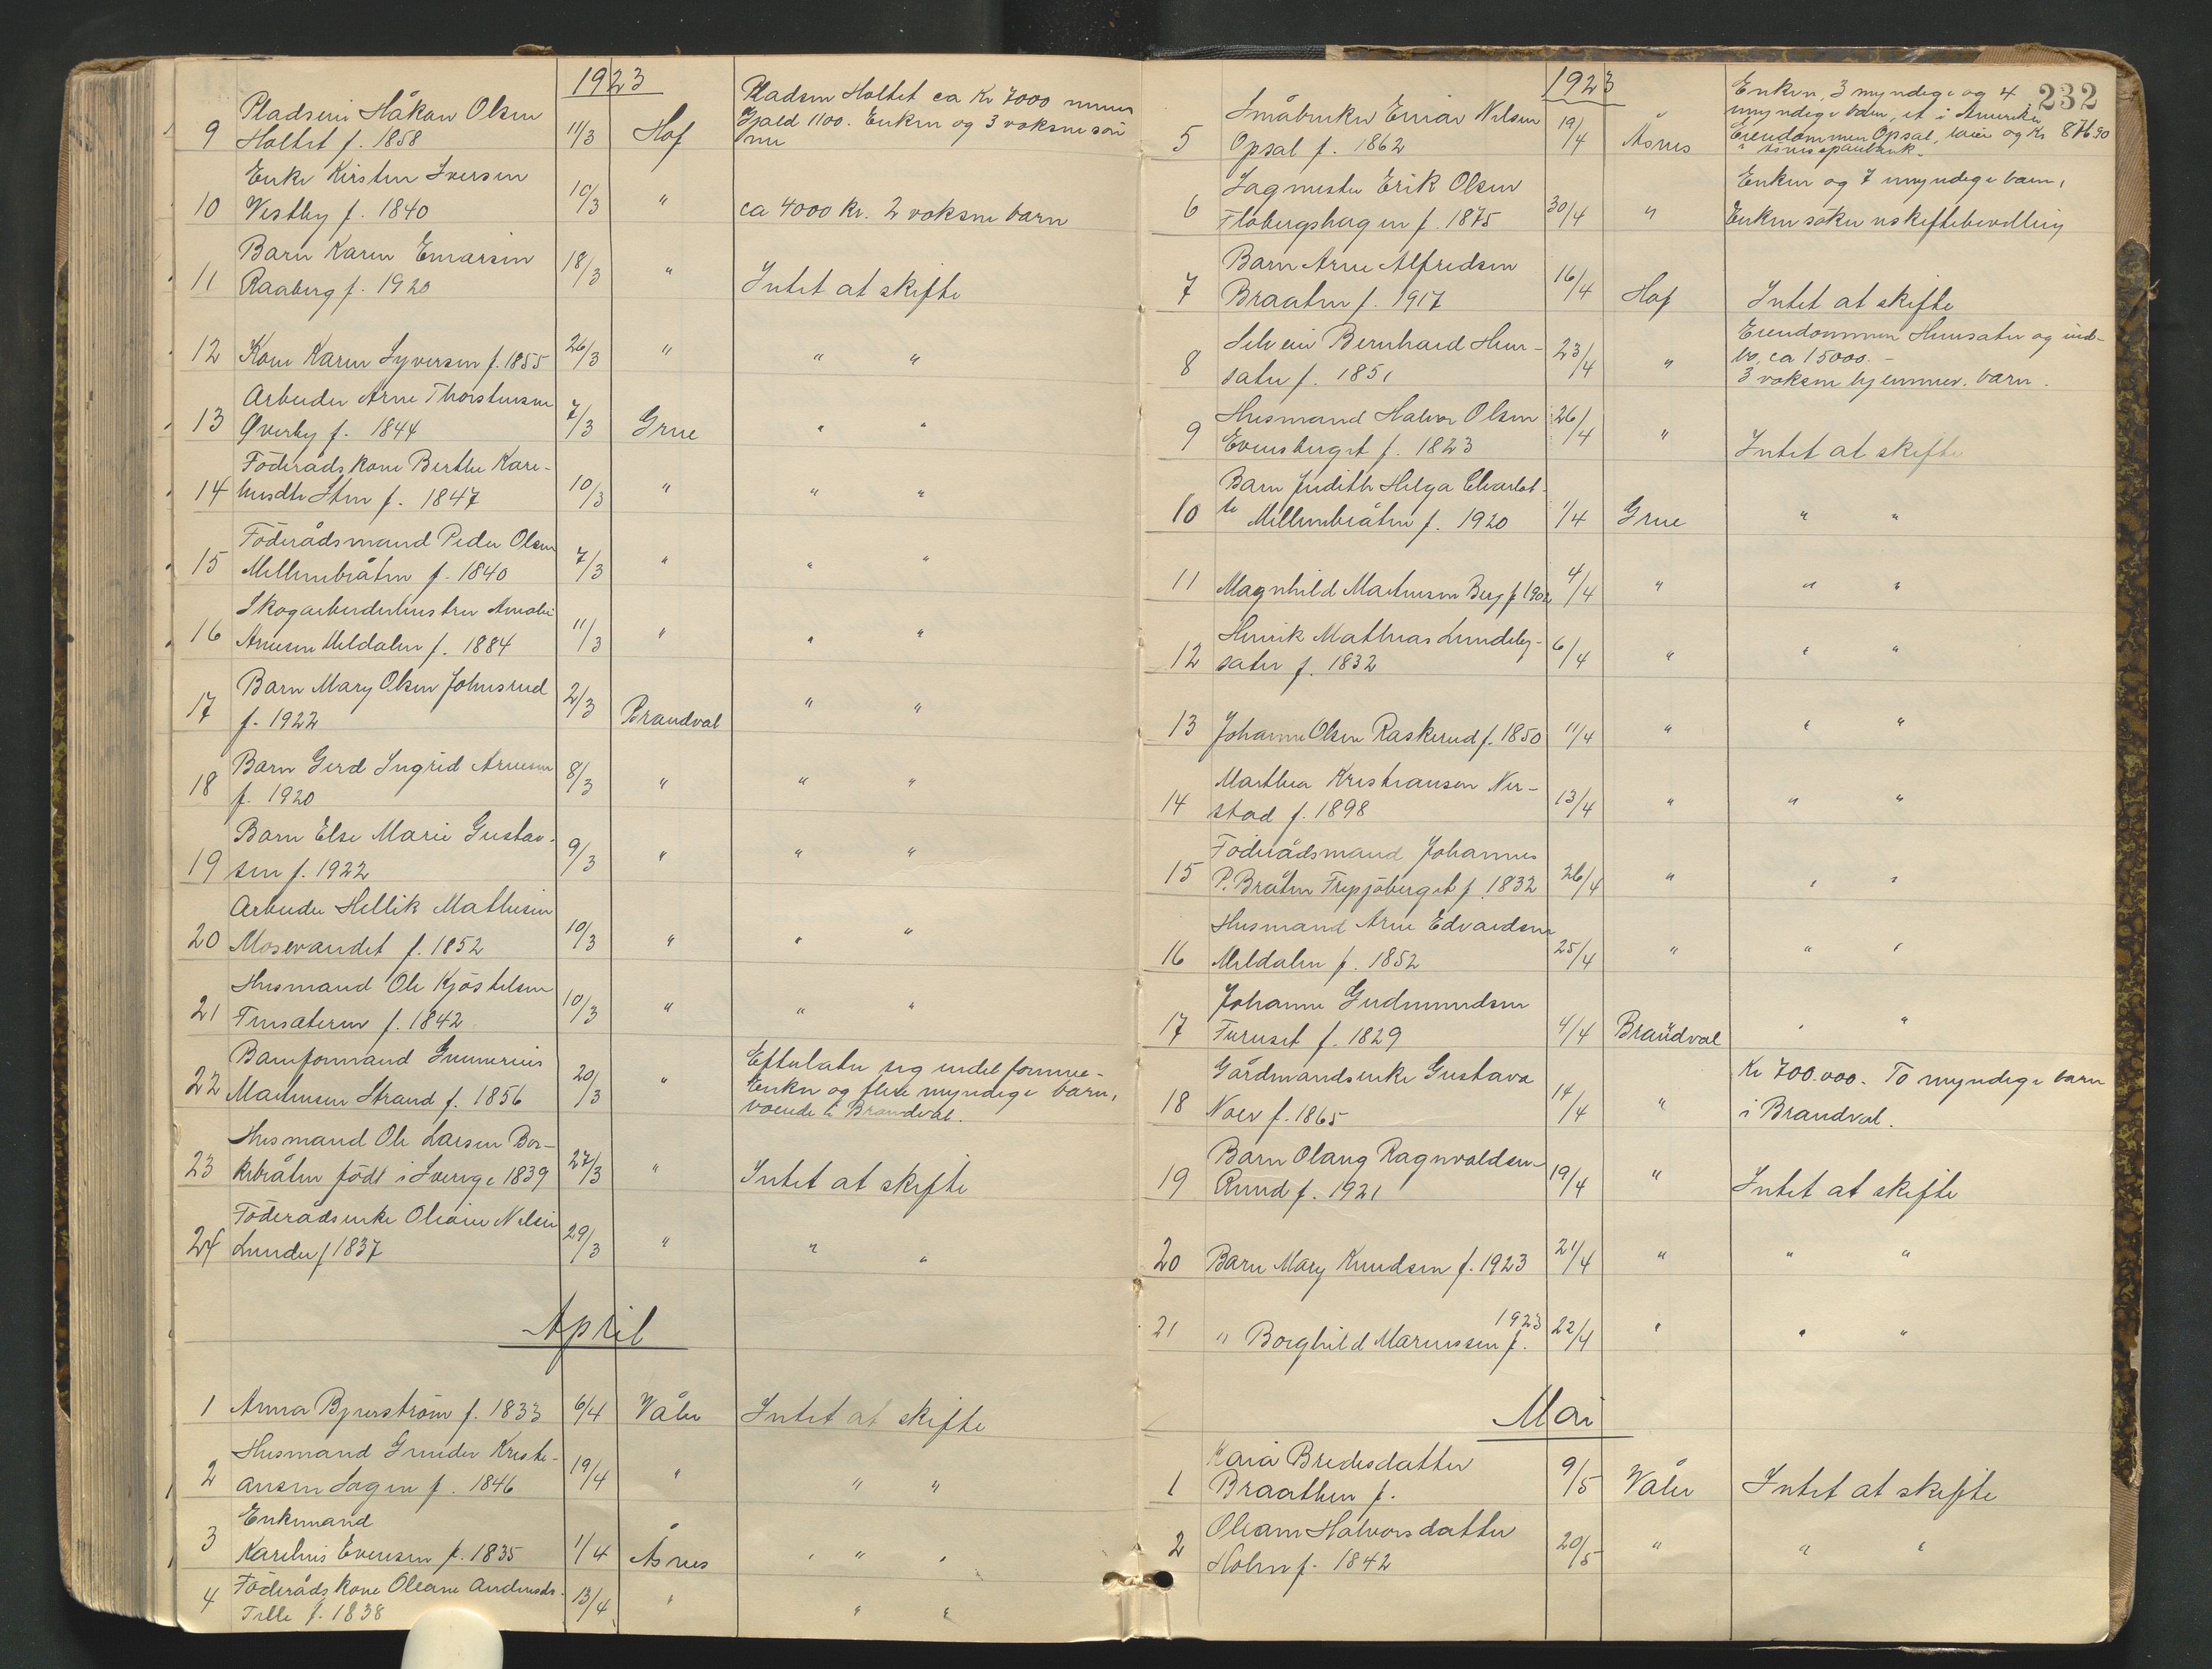 1923
Pladsen Holtet ca Kr 7000 minus
Pladseier Håkan Olsen
9 Holtet f. 1858 11/3 Hof Gjæld 1100. Enken og 3 voksne søn
ner
Enke Kirsten Iversen
10 Vestby f. 1840 10/3 " ca 4000 kr. 2 voksne barn
Barn Karen Einarsen
11 Raaberg f. 1920 18/3 " Intet at skifte
12 Kone Karen Syversen f. 1855 26/3 " " "
Arbeider Arne Thorstensen
13 Øverby f. 1844 7/3 Grue " "
Föderåds kone Berthe Kare-
14 Sten f. 1847 10/3 " " "
Föderådsmand Peder Olsen
15 Mellembråten f. 1840 7/3 " " "
Skogarbeiderhustru Amalie
16 Arnesen Meldalen f. 1884 11/3 " " "
Barn Mary Olsen Johnsrud
17 f. 1922 2/3 Brandval " "
Barn Gerd Ingrid Arnesen
18 f. 1920 8/3 " " "
Barn Else Marie Gustav-
19 sen f. 1922 9/3 " " "
Arbeider Hellik Mathisen
20 Mosevandet f. 1852 10/3 " " "
Husmand Ole Kjöstelsen
21 f. 1842 10/3 " " "
Baneformand Gunnerius
22 Martinsen Strand f. 1856 20/3 " Efterlater sig endel formue-
Enken og flere myndige barn,
boende i Brandval.
Husmand Ole Larsen Bos-
23 kebråten född i Sverige 1839 27/3 " Intet at skifte
Föderådsenke Oleane Nelsen
24 Lunder f 1837 29/3 " " "
April
1 Anna Bjurström f. 1833 6/4 Våler Intet at skifte
Husmand Gunder Kristi-
2 ansen Sagen f. 1846 19/4 " " "
Enkemand
3 Karelius Evensen f. 1835 1/4 Åsnes " " "
4 Föderåds kone Oleane Andersdr.
Telle f. 1838 13/4 " " "
232
1923
Enken, 3 myndige og 4
umyndige barn, et i Amerika
Småbruker Einar Nilsen
5 Opsal f. 1862 19/4 Åsnes Eiendommen Opsal, og Kr 876.90
i Åsnes sparebank.
Sagmester Erik Olsen
6 Flobergshagen f. 1875 30/4 " Enken og 7 umyndige barn,
Enken söker uskiftebevilling
Barn Arne Alfredsen
7 Braaten f. 1917 16/4 Hof Intet at skifte
Selveier Bernhard Huu-
8 sater f. 1851 23/4 " Eiendommen Huusater og ind-
bo, ca 15000.-
3 voksne hjemmev. barn.
Husmand Halvor Olsen
9 Evensberget f. 1823 26/4 " Intet at skifte
Barn Judith Helga Charlot-
10 te Mellembråten f. 1920 1/4 Grue " "
11 Magnhild Martinsen Berg f 1902 4/4 " " "
Henrik Mathias Lundeby-
12 sater f. 1832 6/4 " " "
13 Johanne Olsen Raskerud f. 1850 11/4 " " "
Marthea Kristiansen Ner-
14 stad f. 1898 13/4 " " "
Föderådsmand Johannes
15 P. Bråten f. 1832 26/4 " " "
Husmand Arne Edvardsen
16 Meldalen f. 1852 25/4 " " "
Johanne Gudmundsen
17 Furuset f. 1829 4/4 Brandval " "
Gårdmandsenke Gustava
18 Noer f. 1865 14/4 " Kr 700.000. To myndige barn
i Brandval.
Barn Olaug Ragnvaldsen
19 Ruud f. 1921 19/4 " Intet at skifte
20 Barn Mary Knudsen f. 1923 21/4 " " "
21 " Borghild Mariussen f. 1923 22/4 " " "
Mai
Kaia Bredesdatter
1 Braathen f. 9/5 Våler Intet at skifte
Oleane Halvorsdatter
2 Holen f. 1842 20/5 " " "